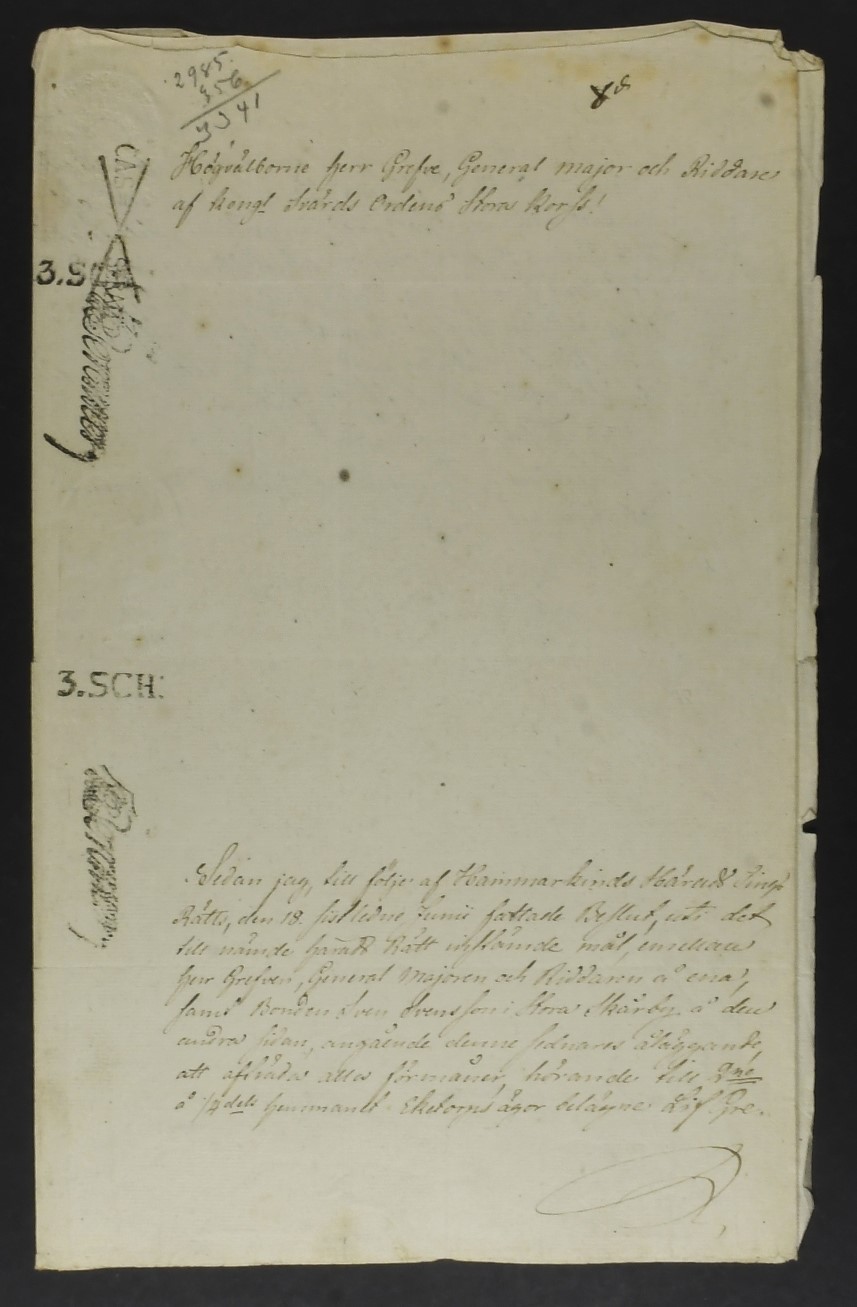 2985.
356
3341
8d
Högvälborne herr Grefve, General major och Riddare
af Kongl Svärds Ordens Stora Korss!
3.S
3.SCH:
Sedan jag, till följe af Hammarkinds Härads Tings
Rätts, den 18. sistledne Junii fattade Beslut, uti det
till nämde härads Rätt instämde mål, emellan
herr Grefven, General Majoren och Riddaren å ena,
samt Bonden Sven Svensson i Stora Skärby å den
andra sidan, angående denne sednares åläggande,
att afträda alla förmåner, hörande till 2ne
å 1/4dels hemmanet Eketorps ägor belägne Lif Gre-